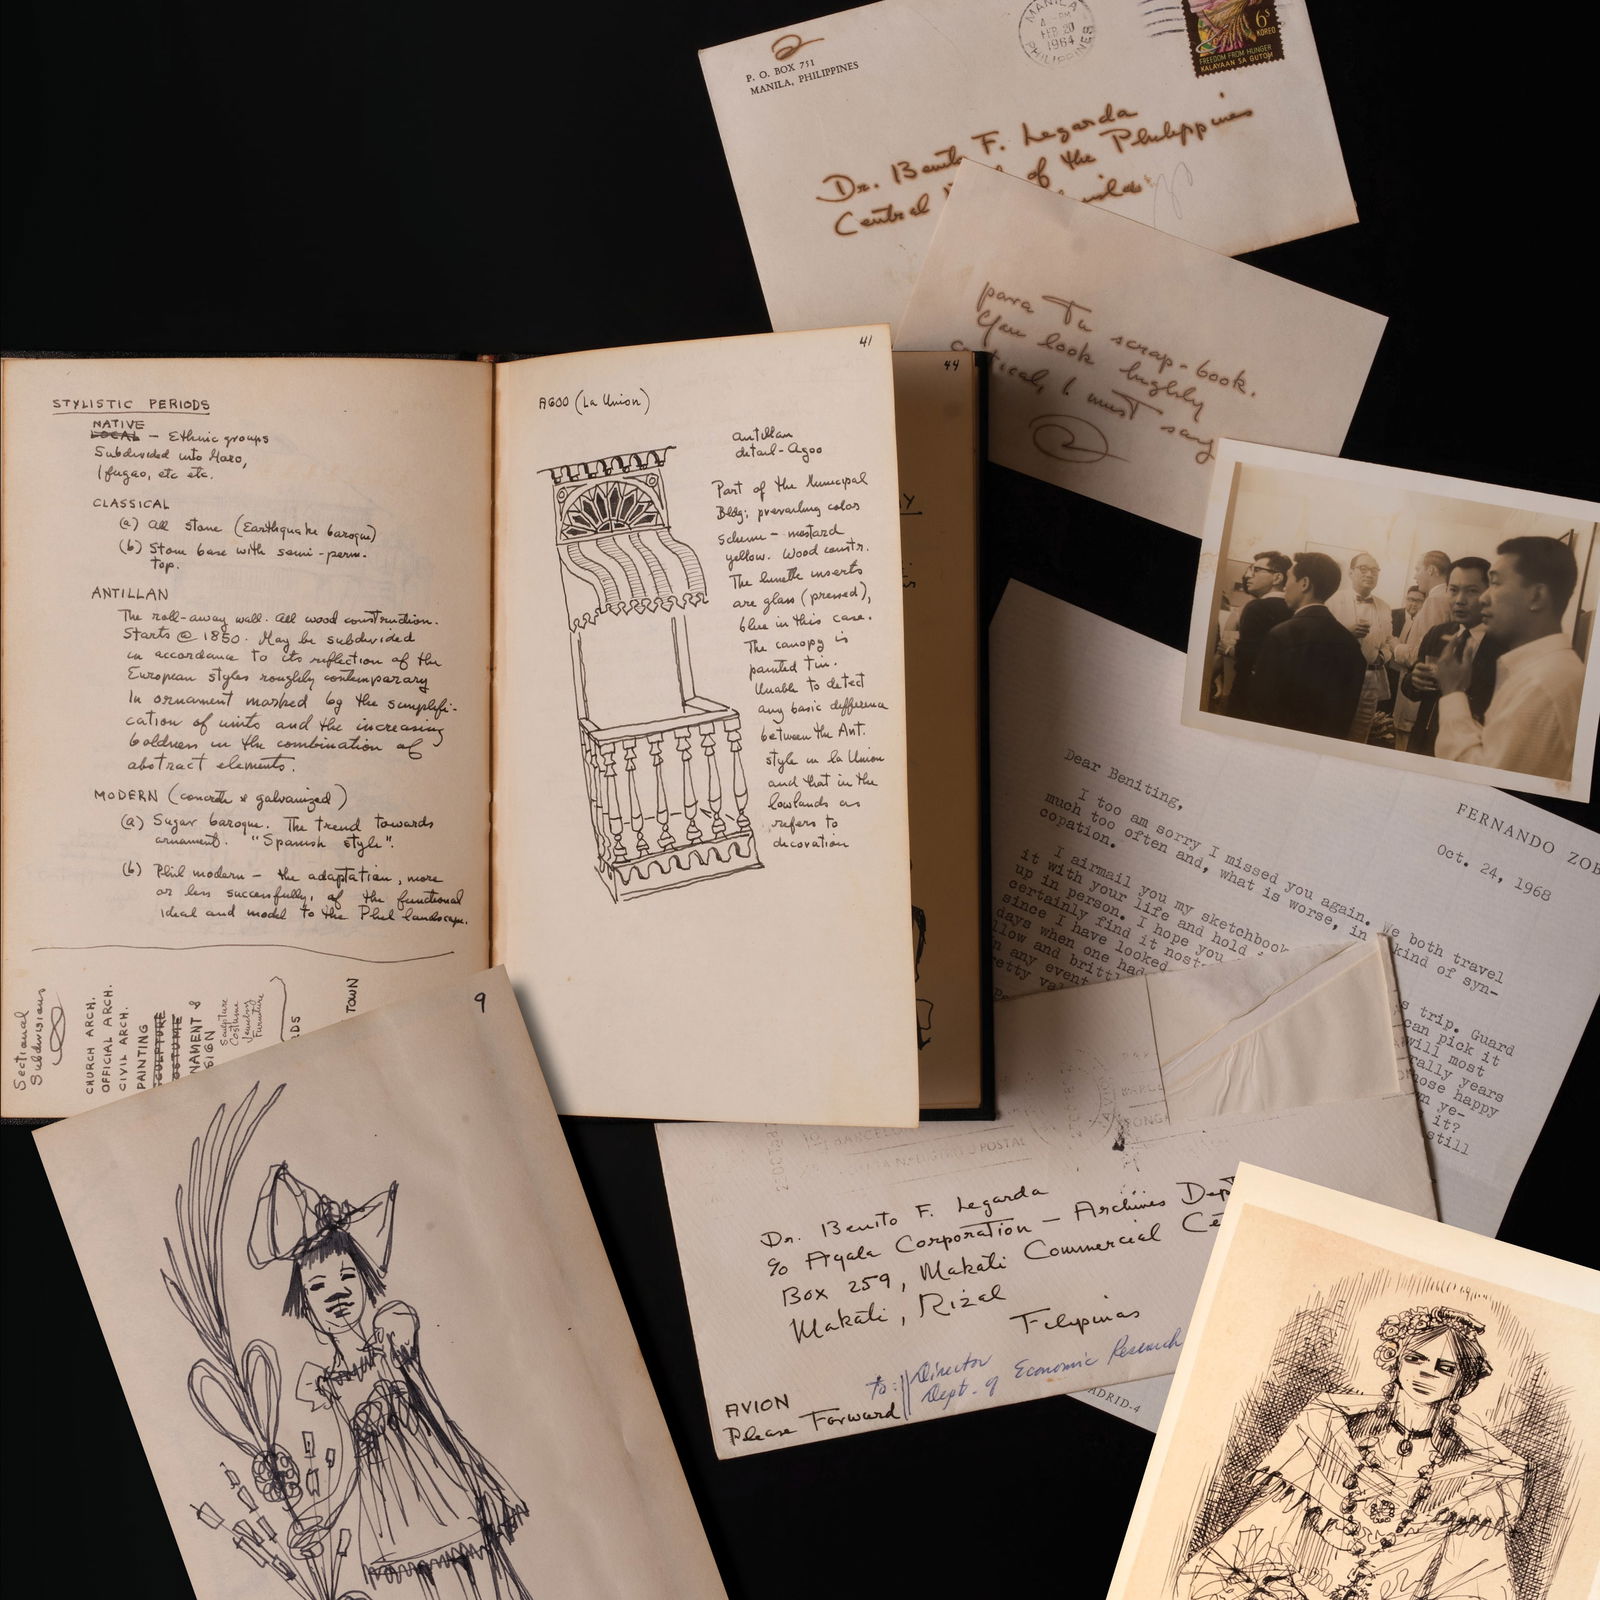 MANILA
FEB 20
1964
PHILIPPINES
6s
KOREO
FREEDOM FROM HUNGER
KALAYAAN SA GUTOM
P. O. BOX 751
MANILA, PHILIPPINES
Dr. Benito F. Legarda
Central of the Philippines
para Tu scrap-book.
You look highly
I must say
STYLISTIC PERIODS
NATIVE
LOCAL – Ethnic groups
Subdivided into Moro,
Ifugao, etc etc.
CLASSICAL
(a) All stone (Earthquake baroque)
(b) Stone base with semi-perm.
top.
ANTILLAN
The roll-away wall. All wood construction.
Starts @ 1850. May be subdivided
in accordance to its reflection of the
European styles roughly contemporary
In ornament marked by the simplifi-
cation of units and the increasing
boldness in the combination of
abstract elements.
MODERN (concrete & galvanized)
(a) Sugar baroque. The trend towards
ornament. "Spanish style".
(b) Phil modern – the adaptation, more
or less successfully, of the functional
ideal and model to the Phil landscape.
Sectional
Subdivisions
CHURCH ARCH.
OFFICIAL ARCH.
CIVIL ARCH.
PAINTING
SCULPTURE
COSTUME
NAMENT &
SIGN
Sculpture
Costume
Jewelry
Furniture
TOWN
41
AGOO (La Union)
antillan
detail-Agoo
Part of the Municipal
Bldg; prevailing color
scheme – mostard
yellow. Wood constr.
The lunette inserts
are glass (pressed),
blue in this case.
The canopy is
painted tin.
Unable to detect
any basic difference
between the Ant.
style in la Union
and that in the
lowlands as
refers to
decoration
44
FERNANDO ZOB
Oct. 24, 1968
Dear Beniting,
I too am sorry I missed you again. We both travel
much too often and, what is worse, in kind of syn-
copation.
I airmail you my sketchbook s trip. Guard
it with your life and hold can pick it
up in person. I hope you will most
certainly find it nost rally years
since I have looked hose happy
days when one had n ye-
llow and britt it?
n any event still
etty val
9
Dr. Benito F. Legarda
c/o Ayala Corporation – Archives Dept
Box 259, Makati Commercial Ce
Makati, Rizal
Filipinas
to: Director
Dept. of Economic Research
AVION
Please Forward
DRID-4